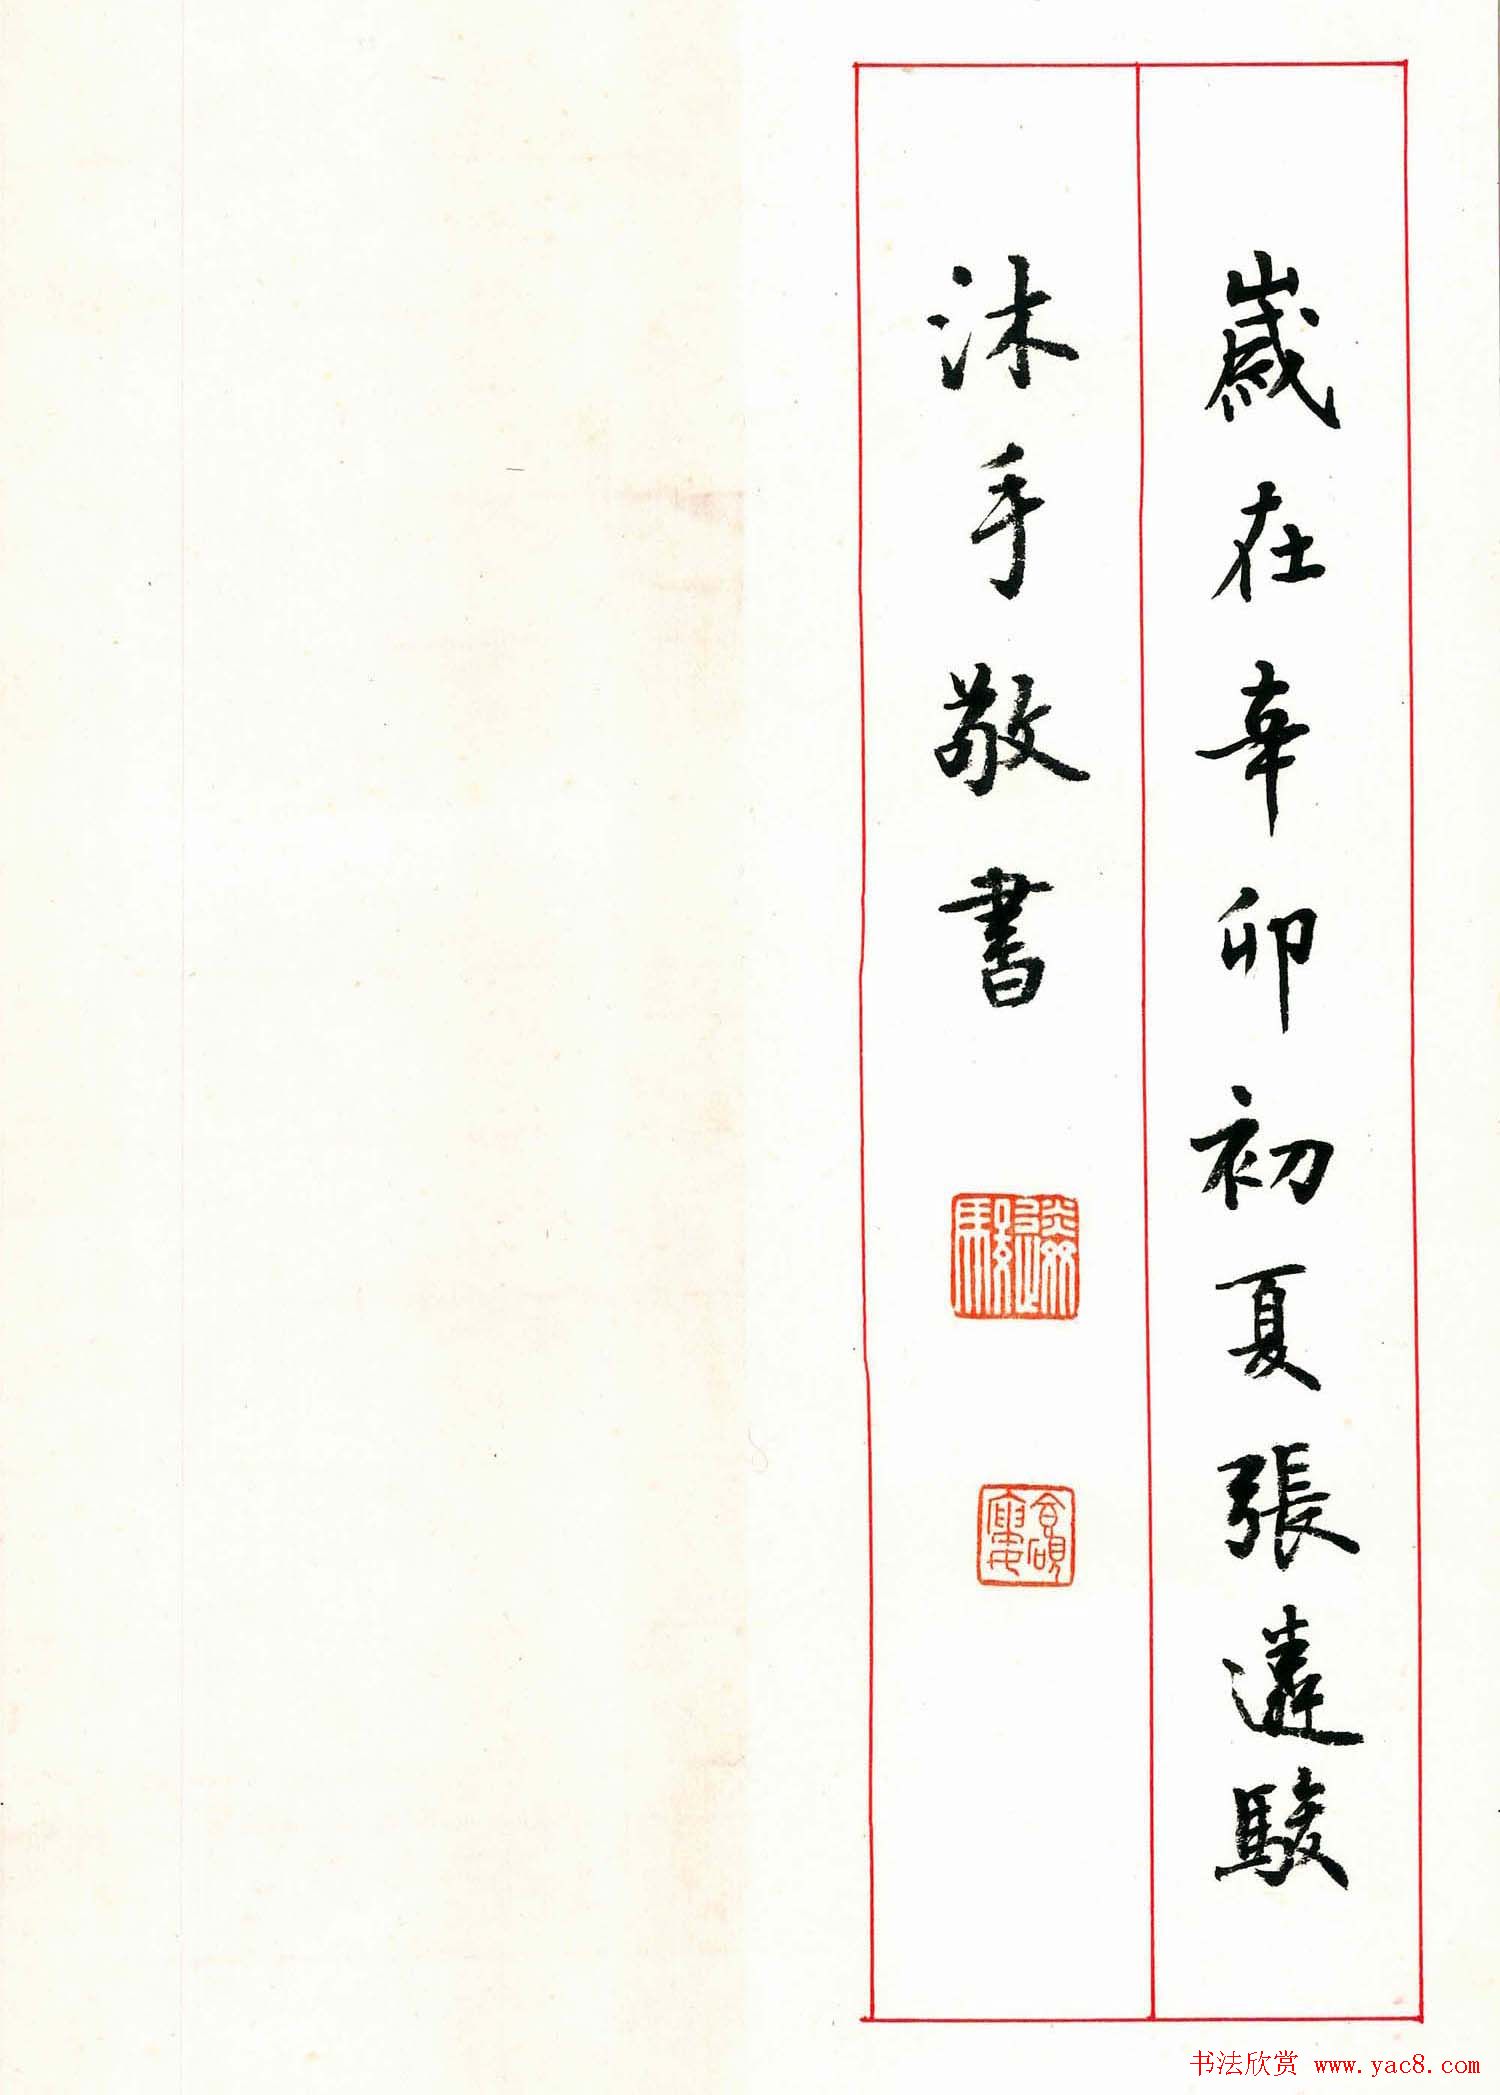 歲在辛卯初夏張遴駿
沐手敬書
书法欣赏 www.yac8.com